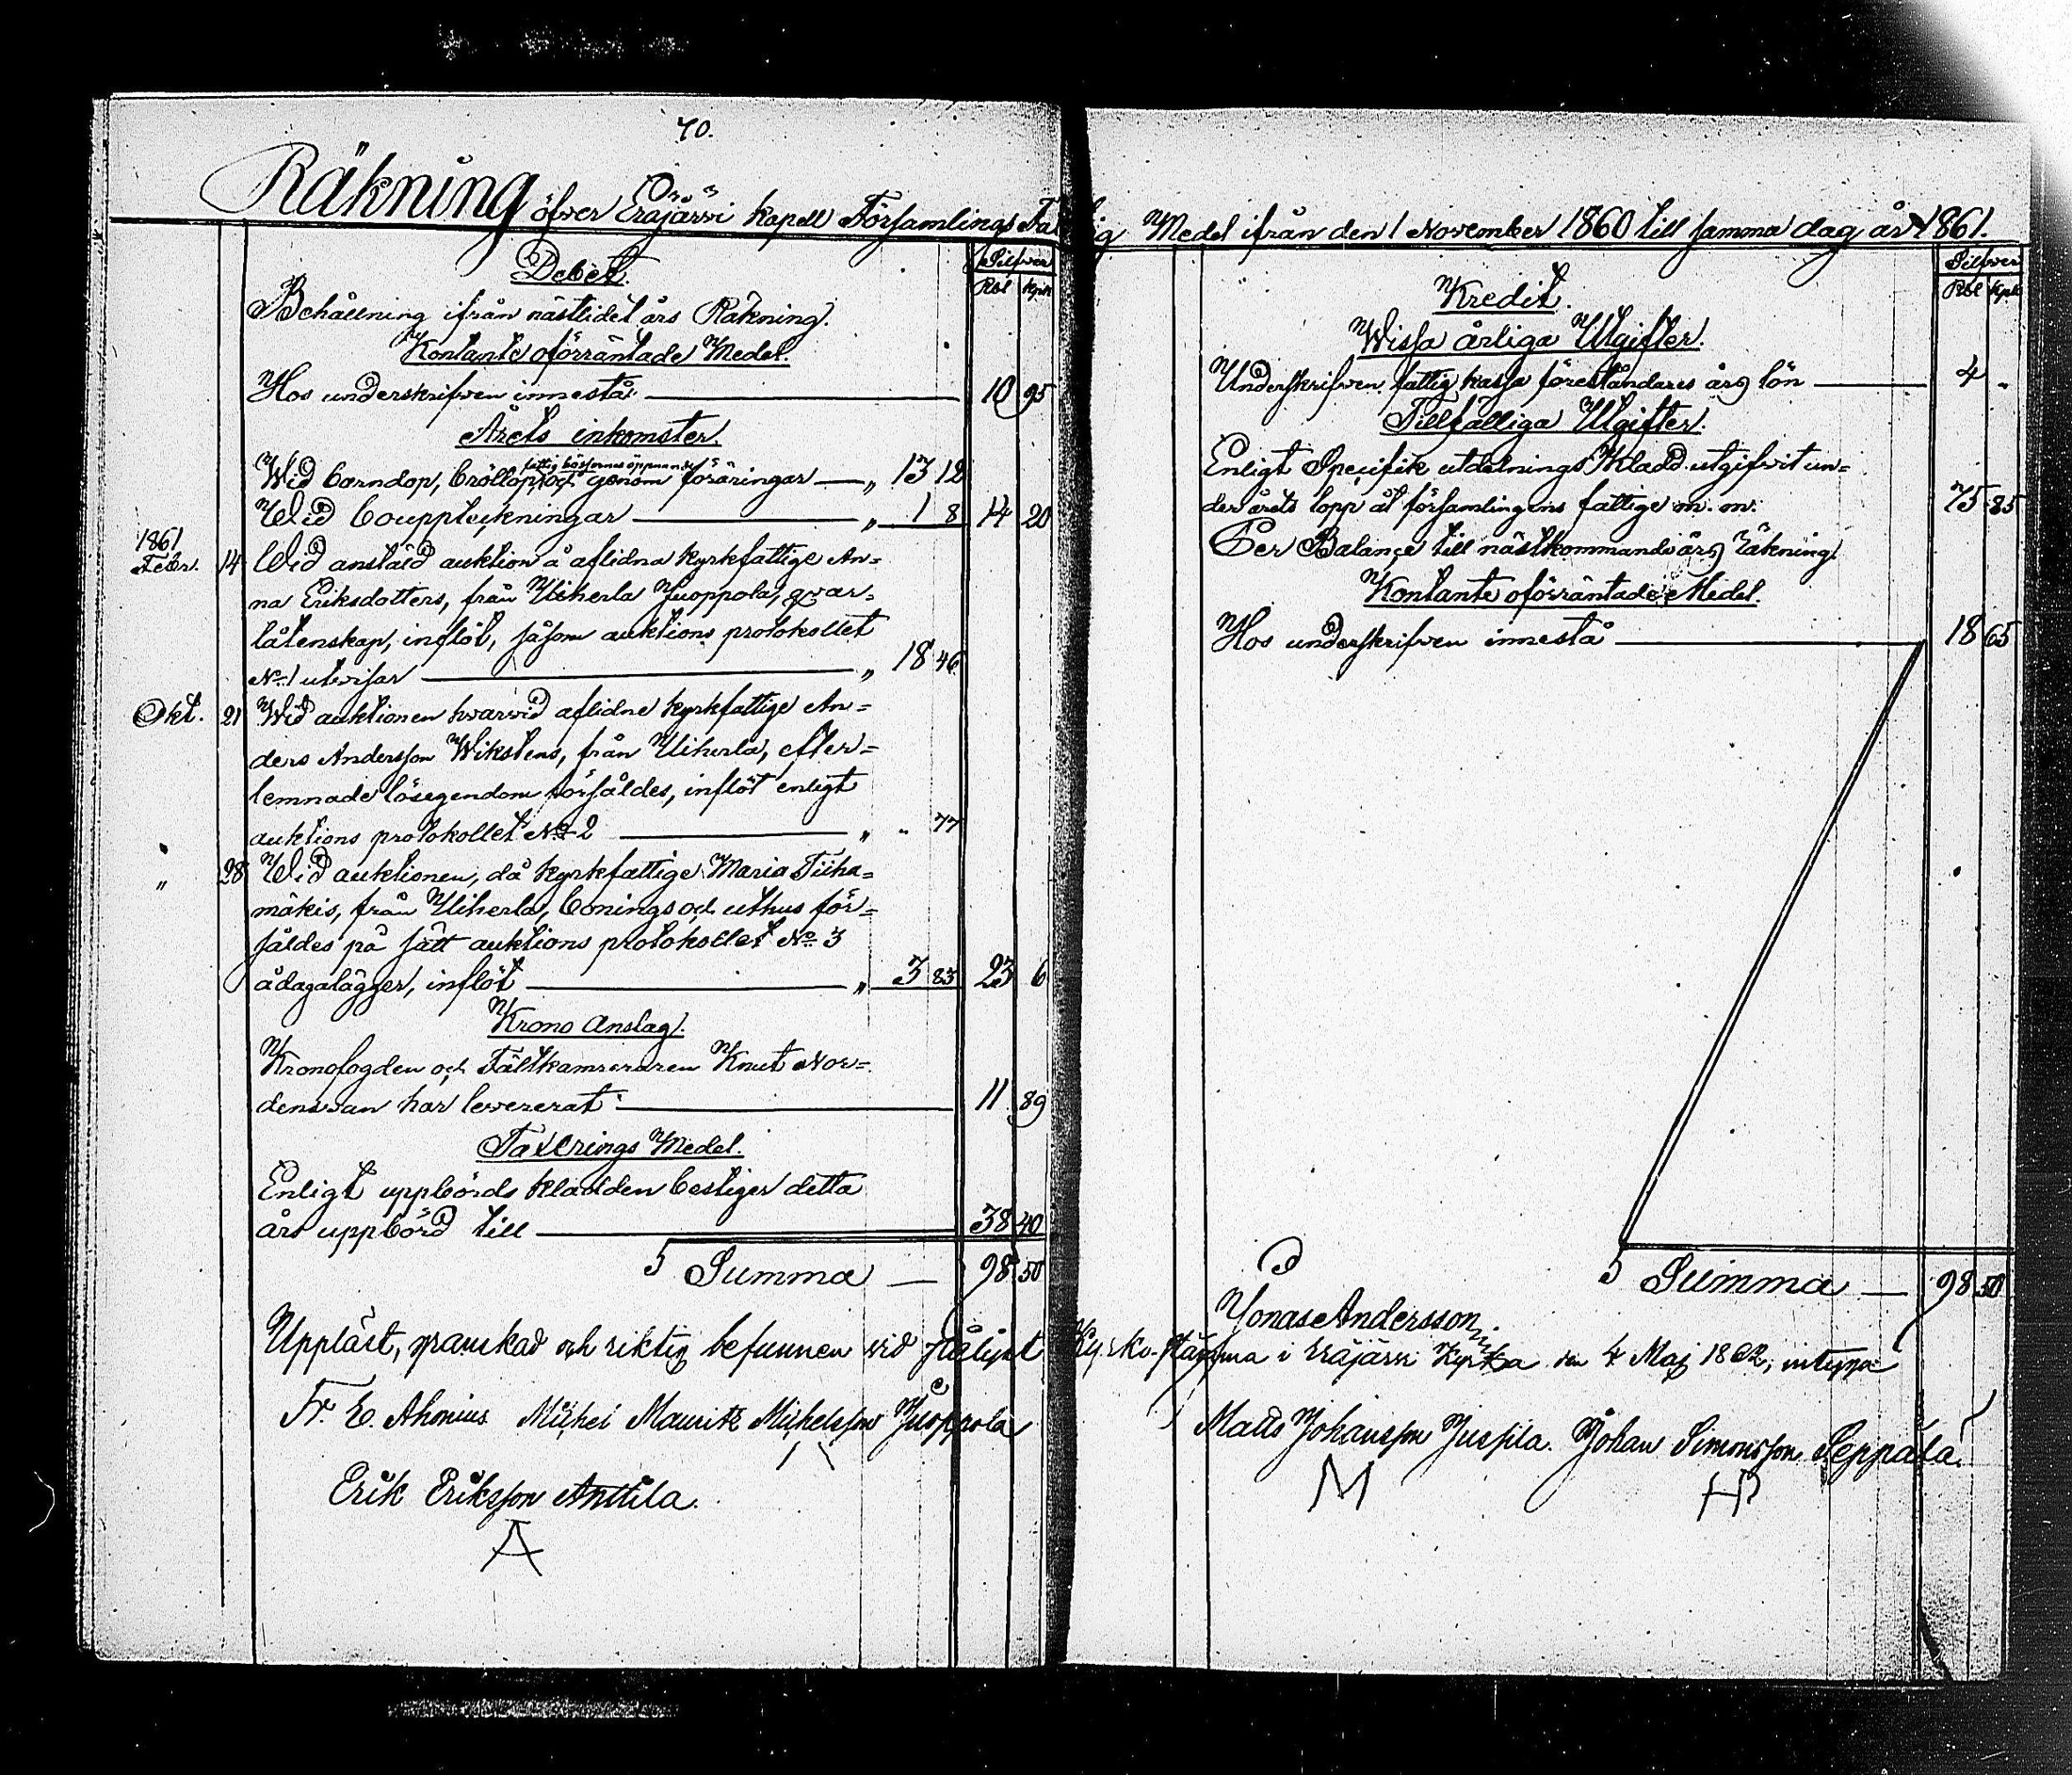 70.
Räkning öfver Eräjärvi kapell Församlings Fattig Medel ifrån den 1 November 1860 till samma dag år 1861.
Debet.
Silfver
Rbl Kpk
Behållning ifrån nästlidet års Räkning.
Kontante oförräntade Medel.
Hos underskrifven innestå 10 95
Årets inkomster.
fattig bössornas öppnande
Wid barndop, bröllop, och genom föräringar „ 13 12
Wid bouppteckningar „ 1 8 14 20
1861
Febr. 14 Wid anstäld auktion å aflidna kyrkfattige An=
na Eriksdotters, från Uiherla Juoppola, qvar=
låtenskap, inflöt, såsom auktions protokollet
No 1 utvisar „ 18 46
Okt. 21 Wid auktionen hvarvid aflidne kyrkfattige An=
ders Andersson Wikstens, från Uiherla, efter=
lemnade lösegendom försåldes, inflöt enligt
auktions protokollet No 2 „ „ 77
„ 28 Wid auktionen, då kyrkfattige Maria Tiiha=
mäkis, från Uiherla, bonings och uthus för=
såldes på sätt auktions protokollet No 3
ådagalägger, inflöt „ 3 83 23 6
Krono Anslag.
Kronofogden och Fältkamreraren Knut Nor=
densvan har levererat 11 89
Taxerings Medel.
Enligt uppbörds kladden bestiger detta
års uppbörd till 38 40
Summa 98 50
Kredit.
Silfver
Rbl Kpk
Wissa årliga Utgifter.
Underskrifven fattig kassa föreståndares års lön 4 „
Tillfälliga Utgifter.
Enligt Specifik utdelnings Kladd utgifvit un=
der årets lopp åt församlingens fattige m. m. 75 85
Per Balance till nästkommande års räkning.
Kontante oförräntade Medel.
Hos underskrifven innestå 18 65
Summa 98 50
Jonas Andersson
Uppläst, granskad och riktig befunnen vid Kyrko-stämma i Eräjärvi Kyrka den 4 Maj 1862, intyga
Fr. E. Ahonius Michel Mauritz Michelsson Juoppola Matts Johansson Jussila. Johan Simonsson Seppälä.
M
Erik Eriksson Anttila.
A